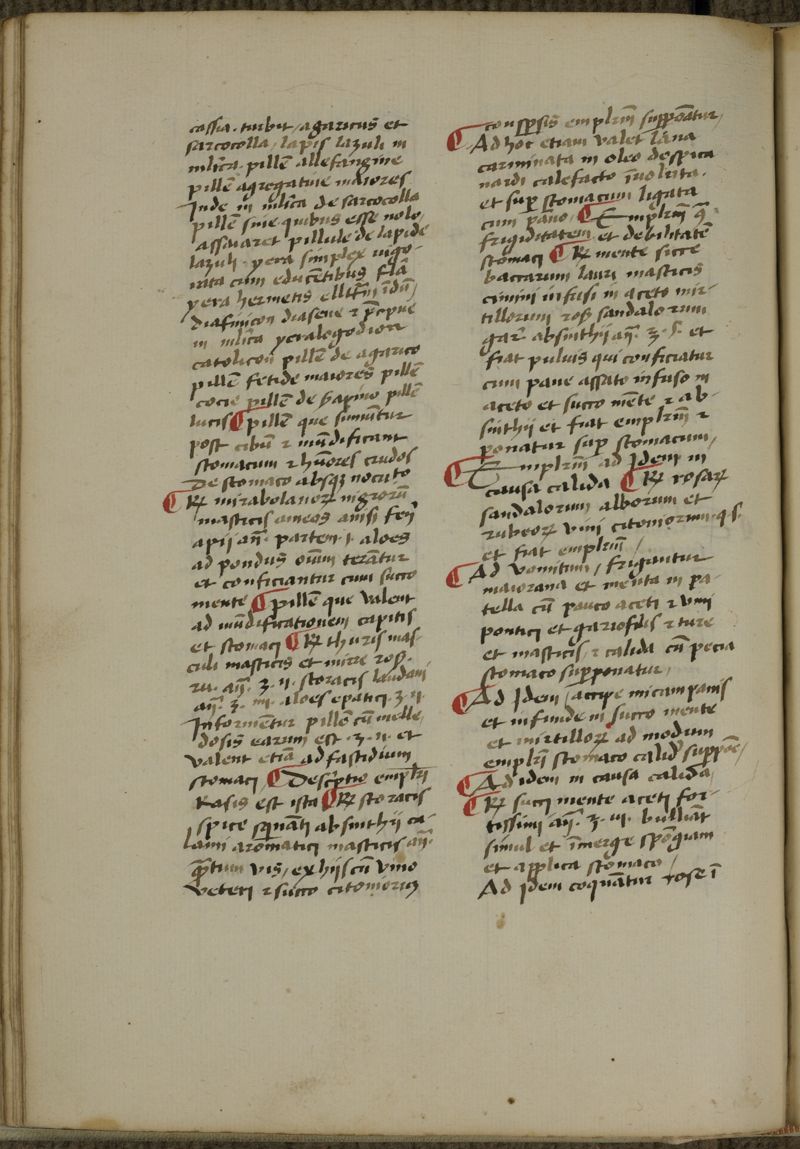 cassia. turbit, agaricus et
sarcocolla, lapis lazuli in
mliͨa. pillē allefangine
pillē agregatiue maiores
Inde in mliͨa de sarcocolla
pillē sine quibus esse nolo,
assaiaret pillule de lapide
lazuli. yera simplex uigo-
rata cum educētibus flā
yera hermetis
diafinicon diasene ⁊ p̄cipue
in mliͨa yeralogodion
catolicon pillē de agarico
pillē fetide maiores pillē
cocie pillē de serapino pillē
lucis ¶ pillē que sumūtur
post cibū ⁊ mūdificant
stomacum ⁊ hūores crudos
De stomaco absqꝫ nocuto
¶ ℞ mirabolanoꝝ nigrorū
masticis ameos anisi feɲ
apij añ. partem .j. aloes
ad pondus oīum terātur
et conficiantur cum succo
mente ¶ pillē que valent
ad mūdificationem capitis
et stomaci ¶ ℞ thuris mas-
culi masticis et mirre ros.
añ. ʒ. ij. storacis laudani
añ. ʒ. iij. aloes epatici. ʒ. ij.
Informētur pillē cū melle,
dosis earum est. ʒ. ij. et
valent etiā ad fastidium
stomaci, ¶ Descriptio emplr̄i
Rasis est ista ¶ ℞ storacis
spice squināti absinthij ca-
lami aromatici masticis añ.
q̄ntum vis, ex hijs cū vino
veteri ⁊ succo citoniorum
conspsis emplr̄m suppōatur,
¶ Ad hoc etiam valet lana
carminata in oleo de spica
nardi calefacto īuoluta.
et sup̱ stomacum ligata
cum pāno, ¶ Emplr̄m q̄
frigiditatem et debilitatē
stomaci ¶ ℞ mente sicce
baccarum lauri masticis
cimini infusi in aceto mir-
tillorum ros̄ sandalorum
gar. absinthij añ. ʒ. s̄. et
fiat puluis qui conficiatur
cum pane assato infuso in
aceto et succo mēte ⁊ ab-
sinthij et fiat emplr̄m ⁊
ponatur sup̱ stomacum,
¶ Emplr̄m ad Idem in
causa calida ¶ ℞ rosaꝝ
sandalorum alborum et
rubeoꝝ vini citoniorum q̄ s.
et fiat emplr̄m,
¶ Ad vomitum, frigantur
maiorana et menta in pa-
tella cū pauco aceti ⁊ vini
pontici et gariofilis ⁊ ture
et masticis, ⁊ calida cū pecia
stomaco supponatur,
¶ Ad Idem, accipe micam panis
et infunde in succo mente
et mirtilloꝝ ad modum
emplr̄i stomaco calid suppōe,
¶ Ad idem in causa calida,
¶ ℞ succi mente aceti for-
tissimi añ. ʒ. iij. bulliāt
simul et īmerge spōgiam
et applica stomaco,
Ad idem coquātur rose ī